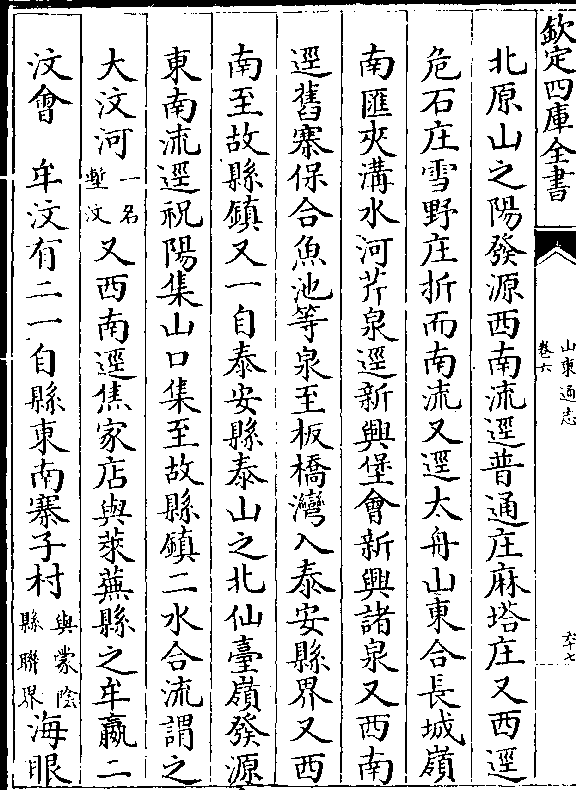 欽定四庫全書
山東通志
卷六
六十七
北原山之陽發源西南流逕普通庄麻塔庄又西逕
危石庄雪野庄折而南流又逕太舟山東合長城嶺
南匯夾溝水河芹泉逕新興堡會新興諸泉又西南
逕舊寨保合魚池等泉至板橋灣入泰安縣界又西
南至故縣鎮又一自泰安縣泰山之北仙臺嶺發源
東南流逕祝陽集山口集至故縣鎮二水合流謂之
大汶河一名塹汶又西南逕焦家店與萊蕪縣之牟羸二
汶會　牟汶有二一自縣東南寨子村與蒙陰縣聯界海眼